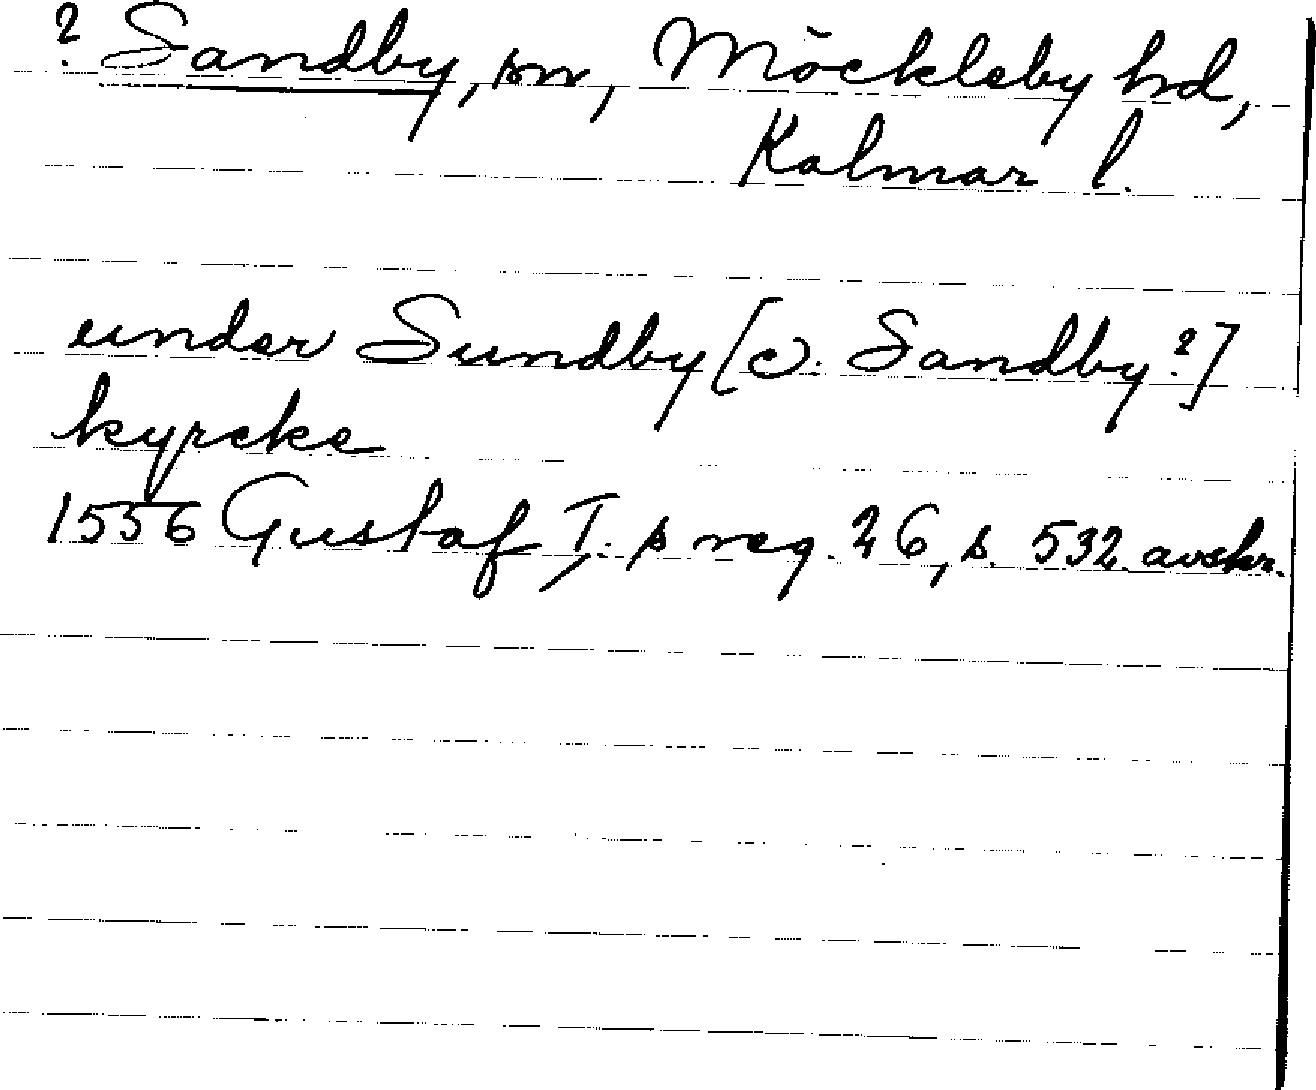 ? Sandby, sn, Möckleby hd,
Kalmar l.
under Sundby [o: Sandby?]
kyrcke
1556 Gustaf I:s reg. 26, s. 532. avskr.